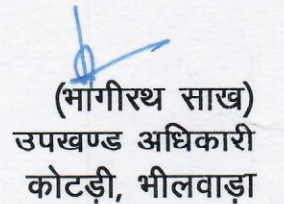 (भागीरथ साख)
उपखण्ड अधिकारी
कोटड़ी, भीलवाड़ा